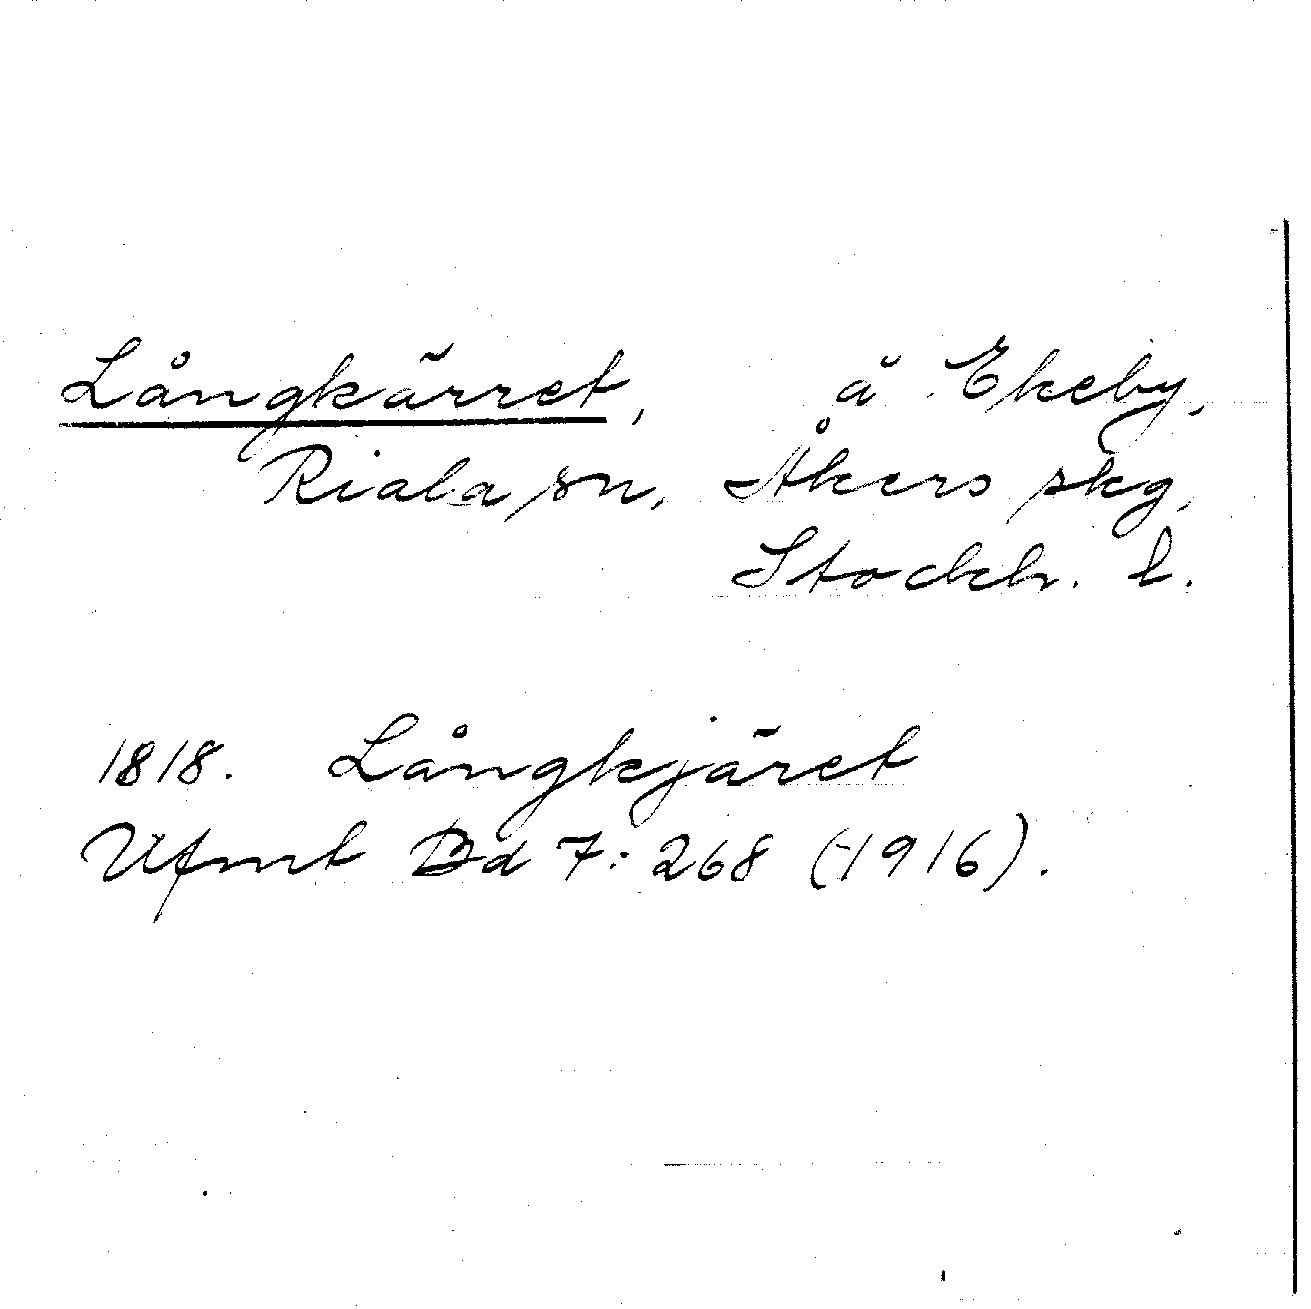 Långkärret, å Ekeby,
Riala sn, Åkers skg,
Stockh. l.
1818. Långkjäret
Ufmt Bd 7: 268 (1916).